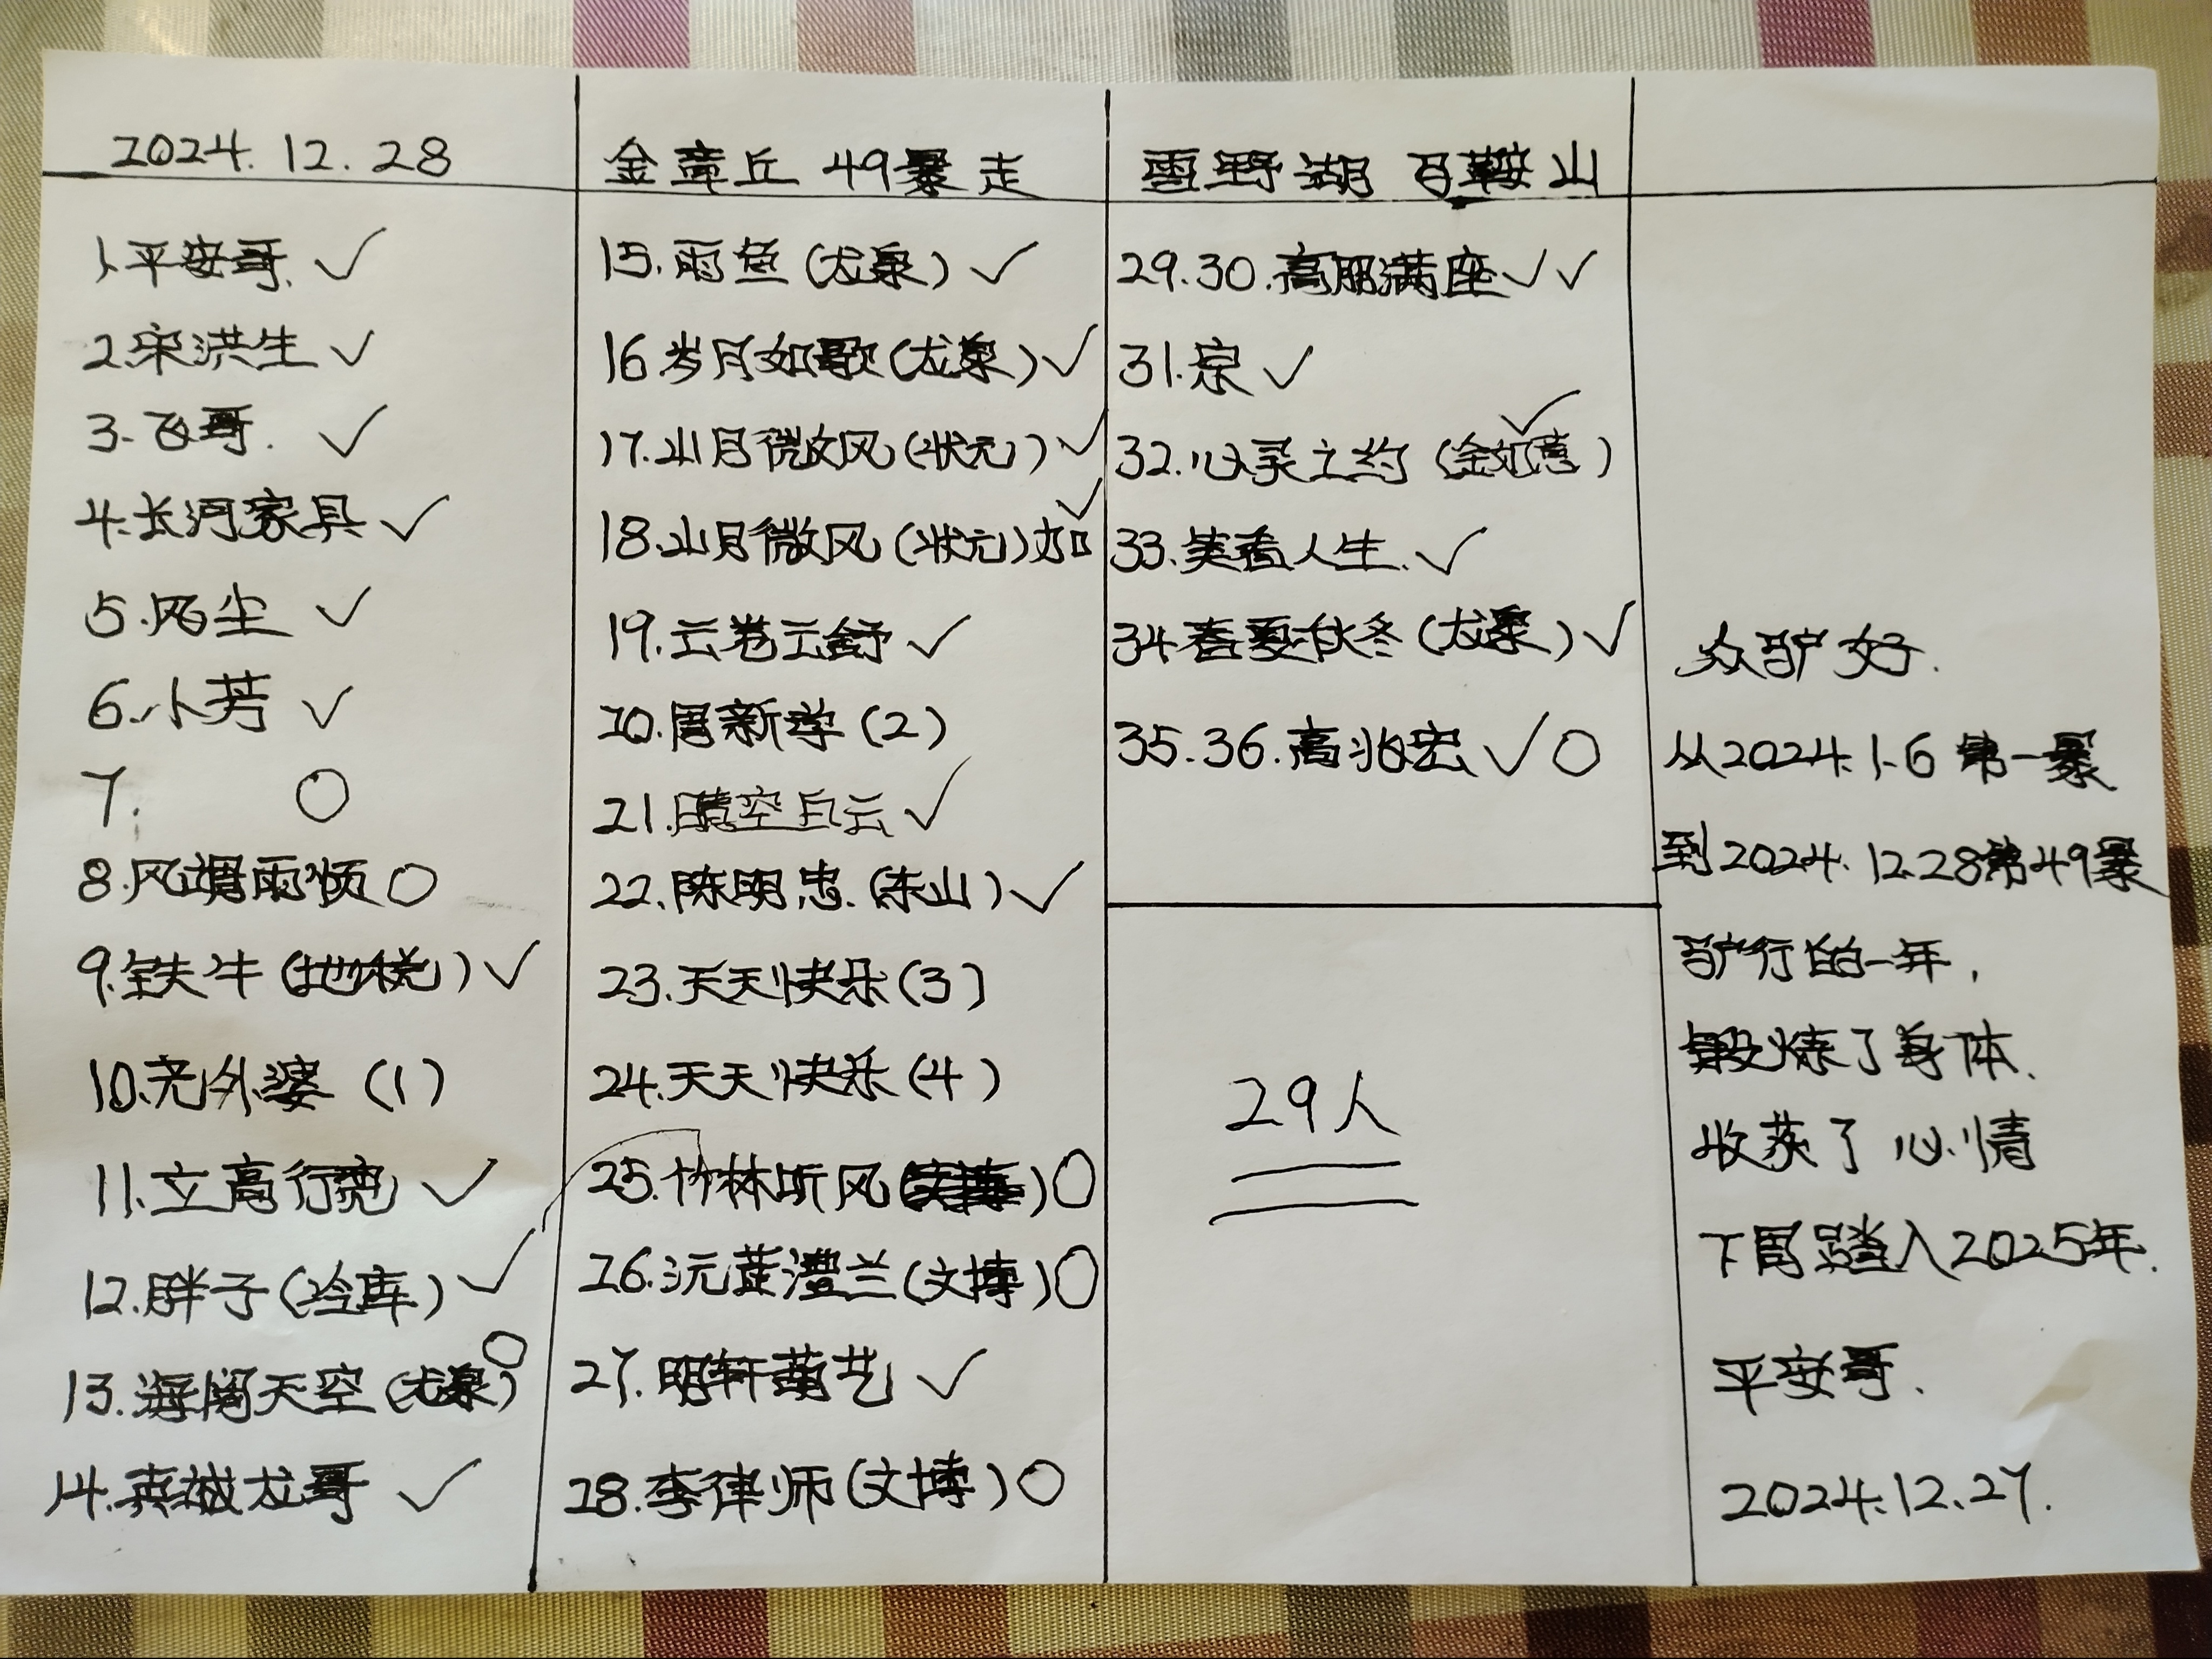 2024.12.28
1.平安哥. ✓
2.宋洪生 ✓
3.飞哥. ✓
4.长河家具 ✓
5.风尘 ✓
6.小芳 ✓
7. ○
8.风调雨顺 ○
9.铁牛(地税) ✓
10.老外婆 (1)
11.立高行亮 ✓
12.胖子(冷库) ✓
13.海阔天空(龙泉) ○
14.龙哥 ✓
金章丘 49暴走
15.雨鱼(龙泉) ✓
16.岁月如歌(龙泉) ✓
17.山月微风(状元) ✓
18.山月微风(状元)加 ✓
19.云卷云舒 ✓
20.周新学(2)
21.晴空白云 ✓
22.陈明忠.(东山) ✓
23.天天快乐(3)
24.天天快乐(4)
25.竹林听风 ○
26.沅芷澧兰(文博) ○
27.明轩菊艺 ✓
28.李律师(文博) ○
雪野湖 马鞍山
29.30.高朋满座 ✓✓
31.宗 ✓
32.心灵之约 (金如意) ✓
33.笑看人生. ✓
34.春夏秋冬(龙泉) ✓
35.36.高兆宏 ✓○
29人
众驴好.
从2024.1.6 第一暴
到2024.12.28第49暴
驴行的一年,
锻炼了身体.
收获了心情
下周踏入2025年.
平安哥.
2024.12.27.